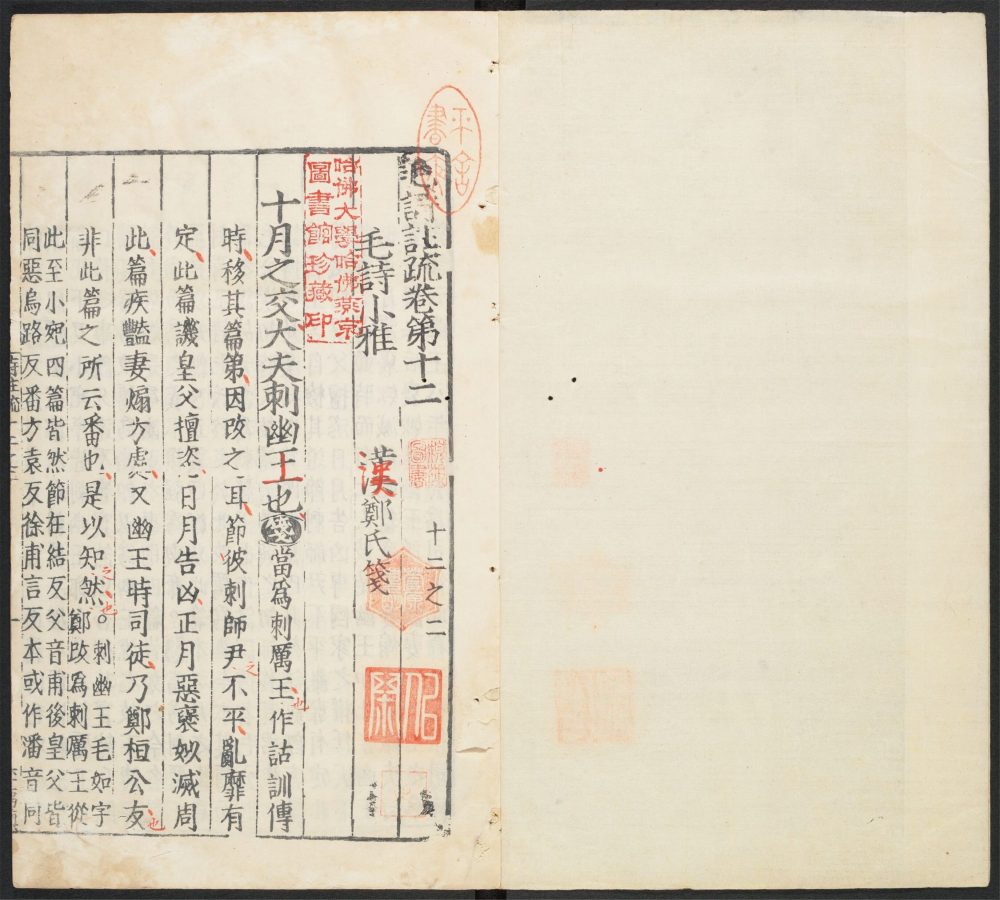 詩註疏卷第十二
十二之二
毛詩小雅
漢鄭氏箋
哈佛大學哈佛燕京
圖書館珍藏印
十月之交大夫刺幽王也箋當為刺厲王作詁訓傳
也
時移其篇第因改之耳節彼刺師尹不平亂靡有
之
定此篇譏皇父擅恣日月告凶正月惡褒姒滅周
此篇疾豔妻煽方處又幽王時司徒乃鄭桓公友
也
非此篇之所云番也是以知然○刺幽王毛如字
鄭改為刺厲王從
之也
此至小宛四篇皆然節在結反父音甫後皇父皆
同惡烏路反番方袁反徐甫言反本或作潘音同